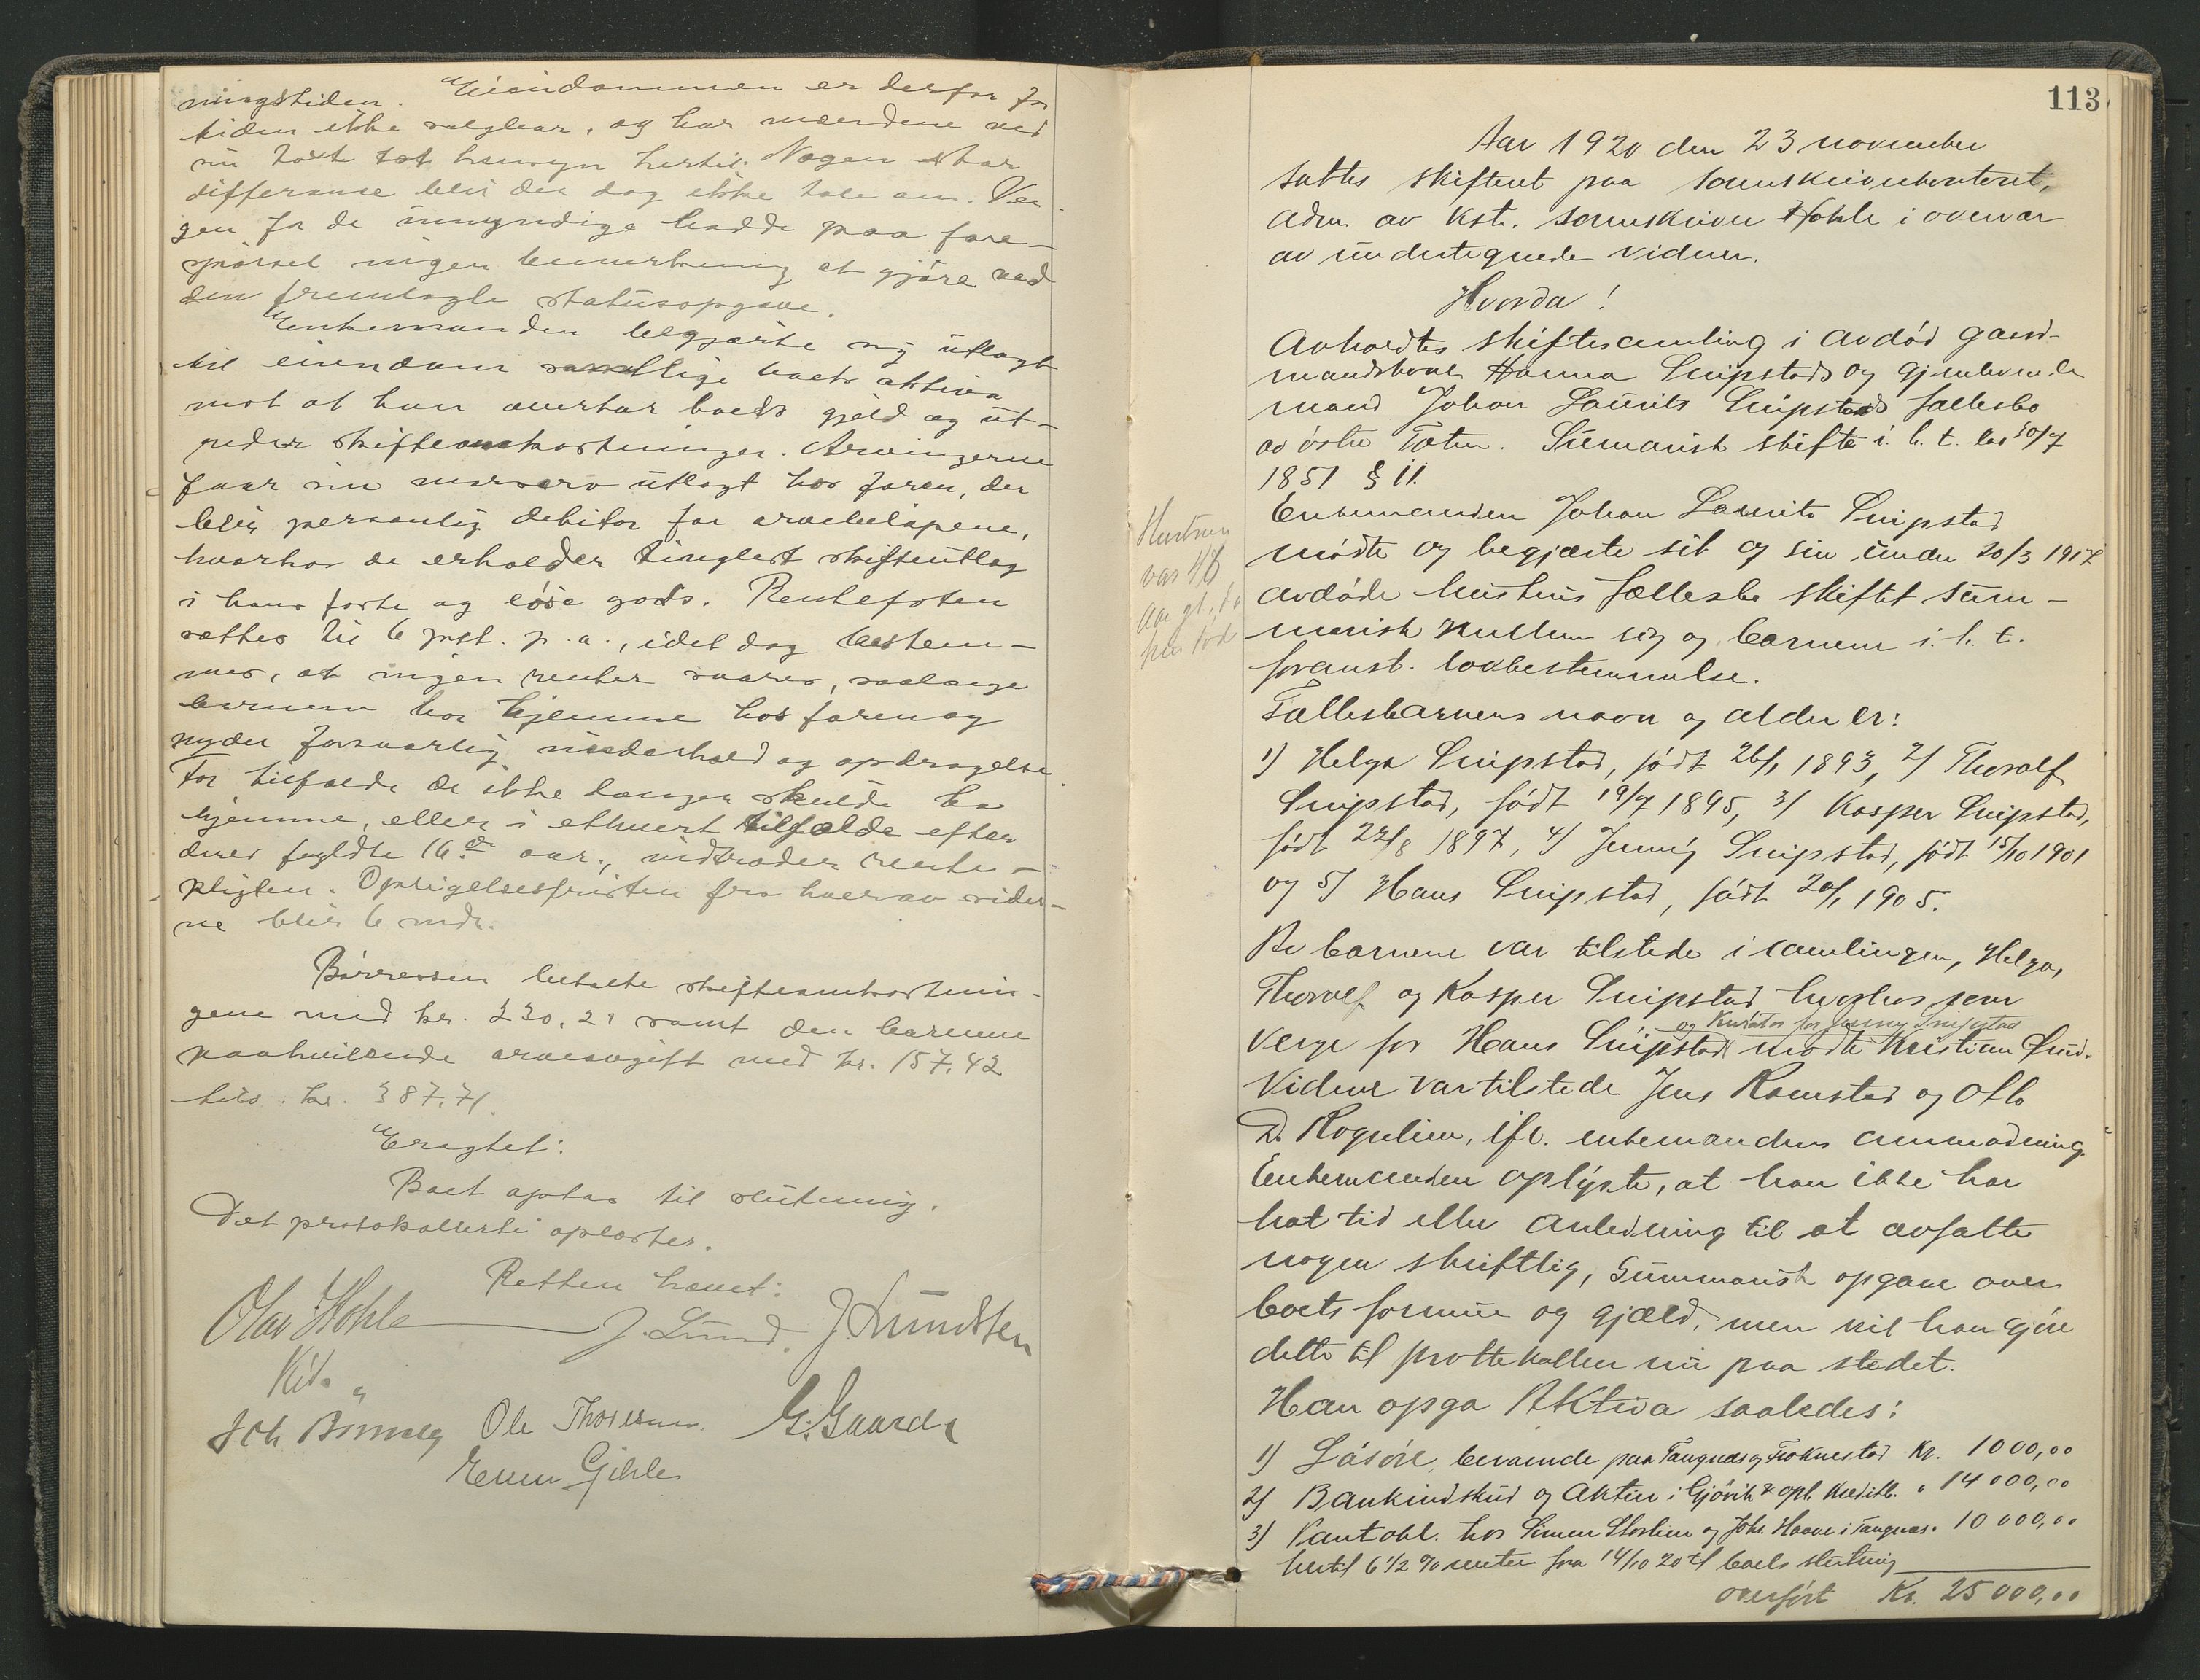 ningstiden. Eiendommen er derfor for
tiden ikke salgbar, og har mændene ved
sin takst tat hensyn hertil. Nogen stor
differanse blir der dog ikke tale om. Ver-
gen for de umyndige hadde paa fore-
spørsel ingen bemerkning at gjøre ved
den fremlagte statusopgave.
Enkemanden begjærte sig utlagt
til eiendom samtlige boets aktiva
mot at han overtar boets gjæld og ut-
reder skifteomkostninger. Arvingerne
faar sin morsarv utlagt hos faren, der
blir personlig debitor for arvebeløpene,
hvorhos de erholder tinglæst skifteutlæg
i hans faste og løse gods. Rentefoten
sættes til 6 pst. p.a., idet dog bestem-
mes, at ingen renter svares, saalænge
barnene bor hjemme hos faren og
nyder forsvarlig underhold og opdragelse.
For tilfælde de ikke længer skulde bo
hjemme, eller i ethvert tilfælde efter
deres fyldte 16de aar, indtræder rente-
pligten. Opsigelsesfristen fra hver av sider-
ne blir 6 mdr.
Børresen betalte skifteomkostnin-
gene med kr. 230.29 samt den barnene
paahvilende arveavgift med kr. 157.42
tils. kr. 387.71.
Eragtet:
Boet optas til slutning.
Det protokollerte oplæstes.
Retten hævet:
Olav Hohle J. Lund. J. Amundsen
Kst.
Ole Thoresen G. Gaarder
Even Gihle
113
Aar 1920 den 23 november
sattes skifteret paa sorenskriverkontoret,
adm. av kst. sorenskriver Hohle i overvær
av undertegnede vidner.
Hvorda!
Avholdtes skiftesamling i avdød gaard-
mandskone Hanna Snipstads og gjenlevende
mand Johan Laurits Snipstads fællesbo
av østre Toten. Summarisk skifte i h. t. lov 30/7
1851 § 11.
Enkemanden Johan Laurits Snipstad
mødte og begjærte sit og sin under 20/3 1917
avdøde hustrus fællesbo skiftet sum-
marisk mellem sig og barnene i. h. t.
foranst. lovbestemmelse.
Hustruen
var 48
aar gl. da
hun døde
Fællesbarnenes navn og alder er:
1) Helga Snipstad, født 26/1 1893, 2/ Thoralf
Snipstad, født 19/7 1895, 3/ Kasper Snipstad,
født 22/8 1897, 4/ Jenny Snipstad, født 15/10 1901
og 5/ Hans Snipstad, født 20/1 1905.
Av barnene var tilstede i samlingen, Helga,
Thoralf og Kasper Snipstad hvorhos som
og Kurator for Jenny Snipstad
verge for Hans Snipstad mødte Kristian Lund.
Vidner var tilstede Jens Ramstad og Otto
D. Rognlien, ifl. enkemandens anmodning.
Enkemanden oplyste, at han ikke har
hat tid eller anledning til at avfatte
nogen skriftlig, summarisk opgave over
boets formue og gjæld, men vil han gjøre
dette til prottekollen nu paa stedet.
Han opga Aktiva saaledes:
1) Løsøre, beroende paa Tangnæs og Fioknestad Kr. 1000,00
2) Bankindskud og Aktier i Gjøvik & opl. Kreditb. " 14000,00
3) Pantobl. hos Simen Storlien og Johs. Haave i Tangnæs. 10000,00
hertil 6 1/2 % renter fra 14/10 20 til boets slutning
overført Kr. 25000,00